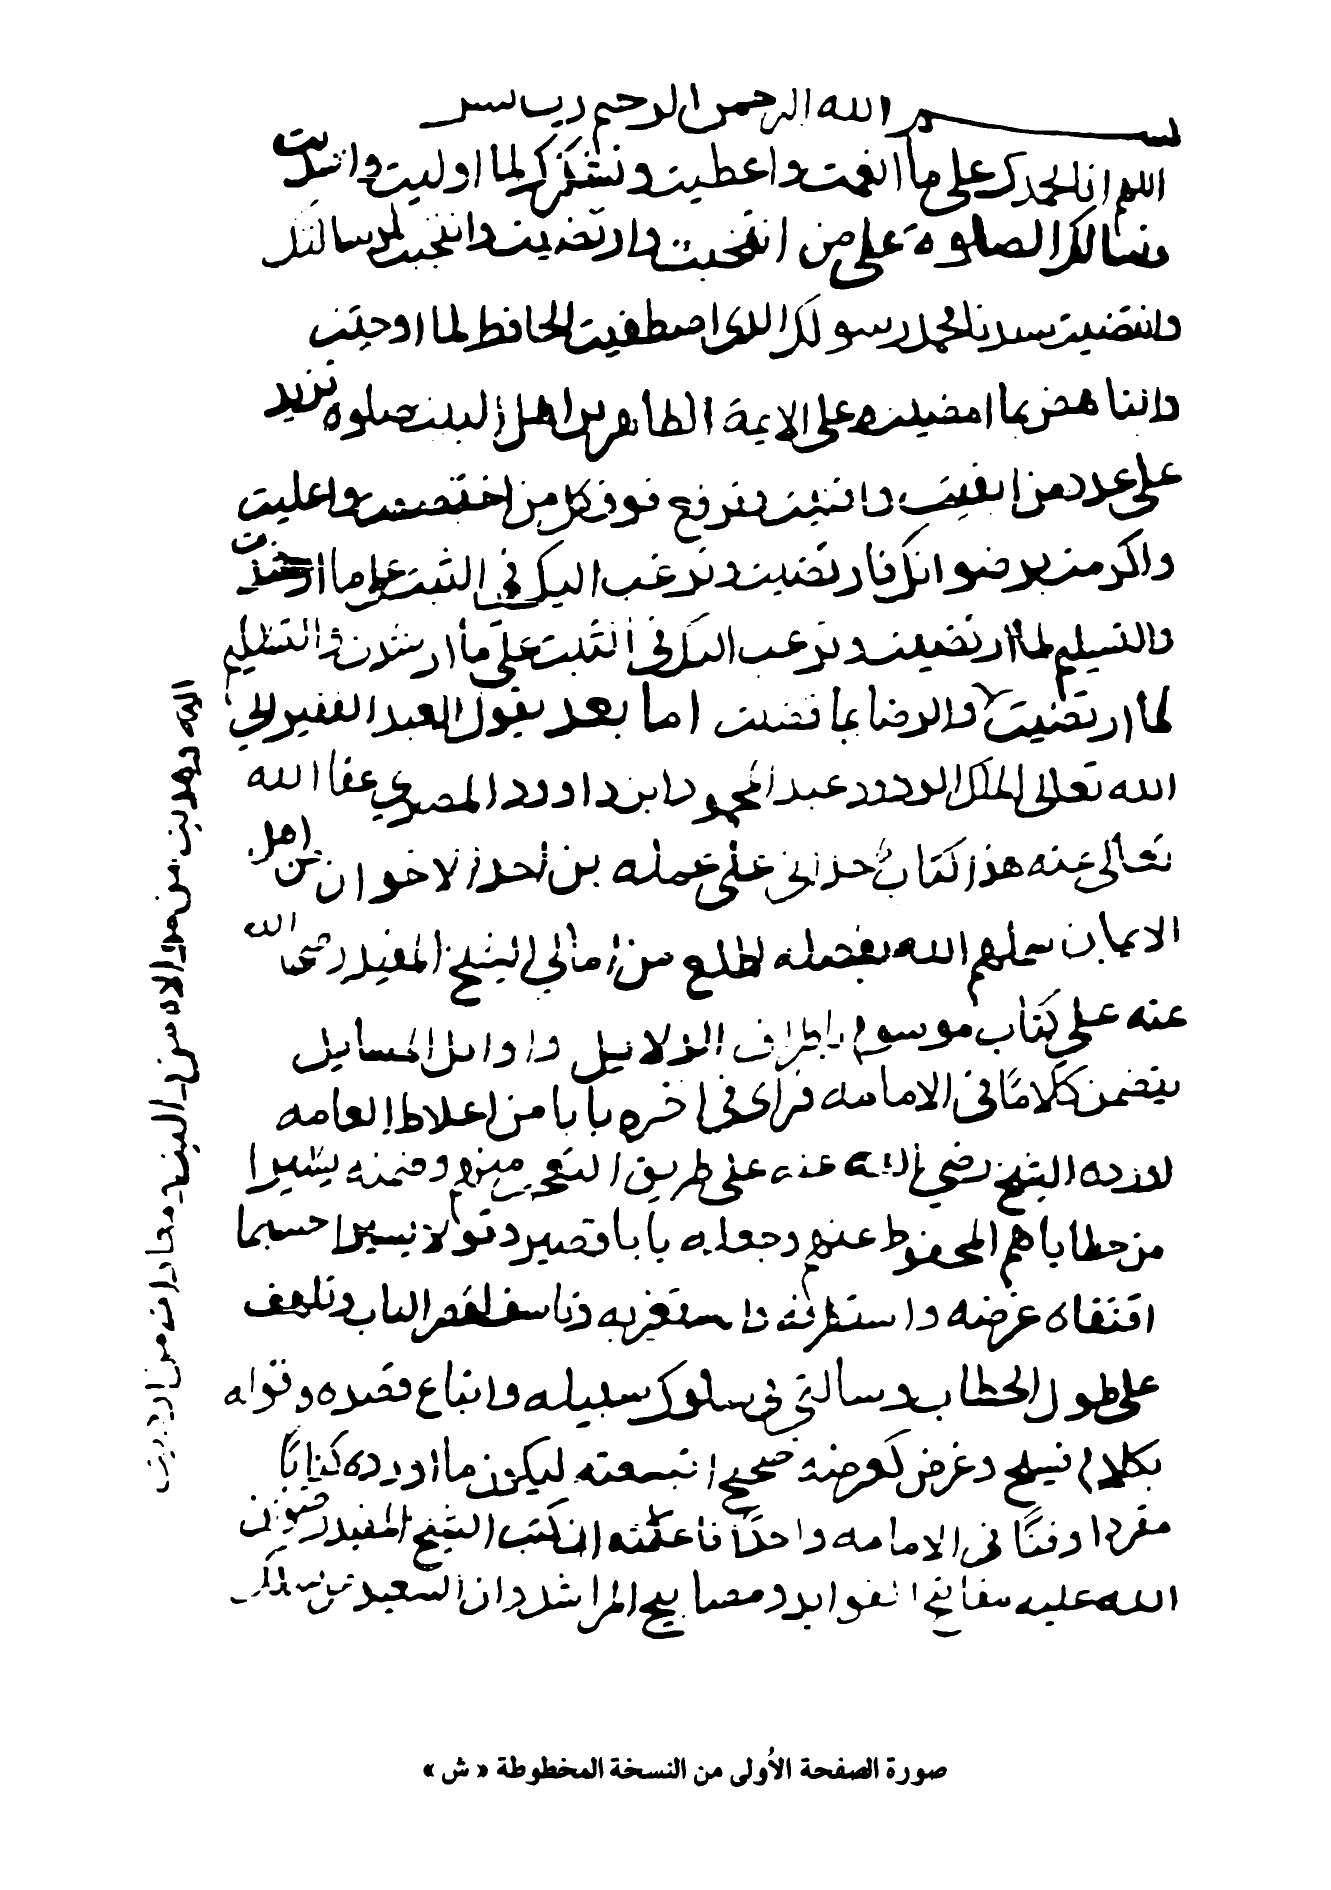 بسم الله الرحمن الرحيم رب يسر
اللهم انا نحمدك على ما انعمت واعطيت ونشكرك لما اوليت واسديت
ونسالك الصلوة على من انتخبت وارتضيت وانتجبت لرسالتك
وانتضيت سيدنا محمد رسولك الذى اصطفيت الحافظ لما اوحيت
والناهض بما امضيت وعلى الايمة الطاهرين اهل البيت صلوة تزيد
على عدد من ابقيت وافنيت وترفع فوق كل من اختصصت واعليت
واكرمت برضوانك فارتضيت ونرغب اليك فى الثبت على ما
والتسليم لما ارتضيت ونرغب اليك فى الثبت على ما ارشدت والتسليم
لما ارتضيت والرضا بما قضيت اما بعد يقول العبد الفقير الى
الله تعالى الملك الودود عبد المحمود ابن داوود المصري عفا الله
تعالى عنه هذا كتاب حدانى على عمله بن احد الاخوان من اهل
الايمان سملهم الله بفضله اطلع من امالي الشيخ المفيد رضى الله
عنه على كتاب موسوم باطراف الدلايل واوايل المسايل
يتضمن كلامًا فى الامامه فراى فى اخره بابا من اغلاط العامه
اورده الشيخ رضي الله عنه على طريق التعجب منهم وضمنه يسيرا
من خطاياهم المحفوظ عنهم وجعله بابا قصير وقولا يسيرا حسبما
اقتضاه غرضه واستطرفه واستغربه وتاسف لقصر الباب وتلهف
على طول الخطاب وسالنى فى سلوك سبيله واتباع قصده وقوله
بكلام فسيح وغرض كغرضه صحيح اتبعته ليكون ما اورده كتابًا
مفردا وفنًا فى الامامه واحدًا فاعلمته ان كتب الشيخ المفيد رضوان
الله عليه مفاتيح الفوايد ومصابيح المراشد وان السعيد من سلك
صورة الصفحة الأولى من النسخة المخطوطة « ش »